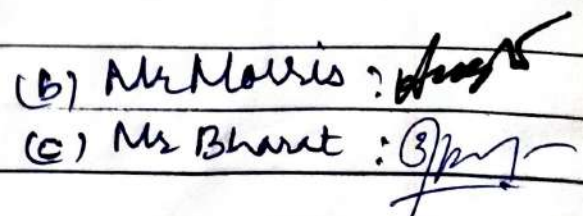 (B) Mr Morris :
(C) Mr Bharat :